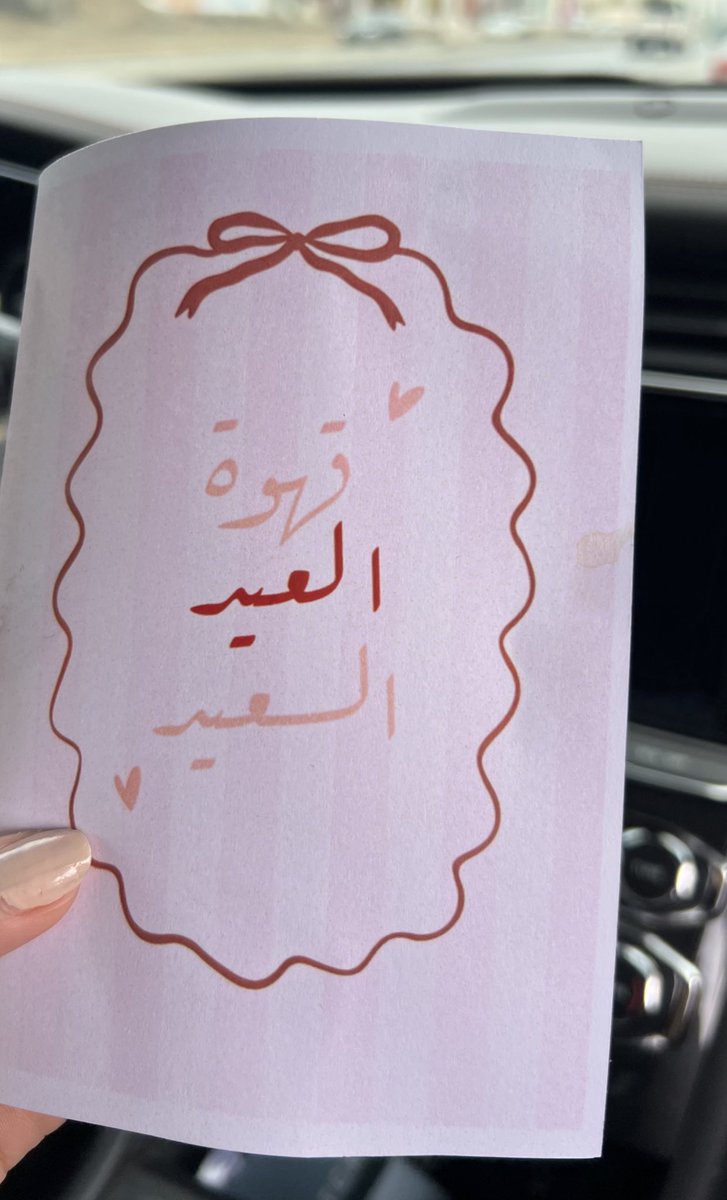 قهوة
العيد
السعيد